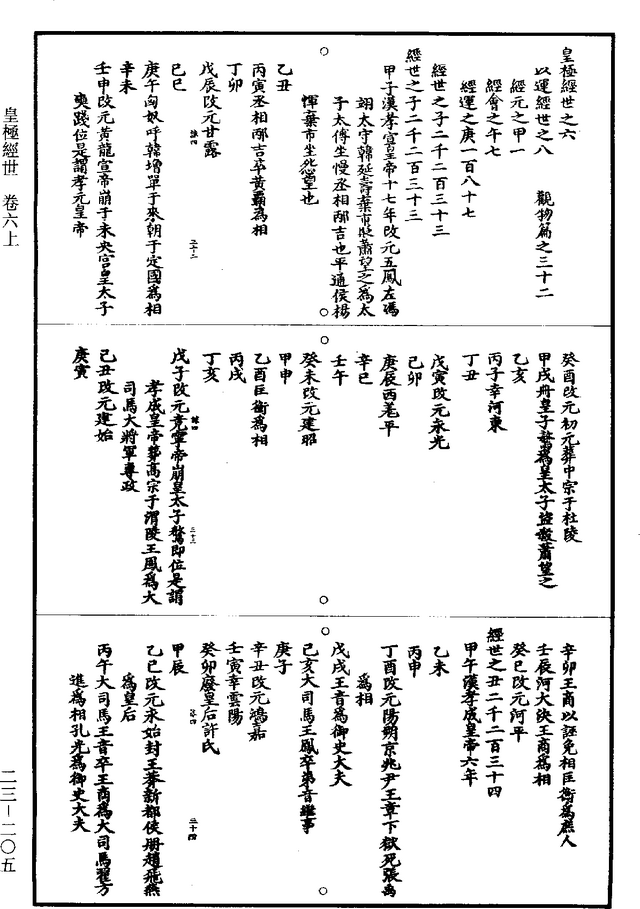 皇極經世之六
以運經世之八　觀物篇之三十二
經元之甲一
經會之午七
經運之庚一百八十七
經世之子二千二百三十三
經世之子二千二百三十三
甲子漢孝宣皇帝十七年改元五鳳左馮
翊太守韓延壽棄市貶蕭望之為太
子太傅坐慢丞相邴吉也平通侯楊
惲棄市坐怨望也
乙丑
丙寅丞相邴吉卒黃霸為相
丁卯
戊辰改元甘露
己巳
庚午匈奴呼韓增單于來朝于定國為相
辛未
壬申改元黃龍宣帝崩于未央宮皇太子
奭踐位是謂孝元皇帝
癸酉改元初元葬中宗于杜陵
甲戌冊皇子驁為皇太子盜殺蕭望之
乙亥
丙子幸河東
丁丑
戊寅改元永光
己卯
庚辰西羌平
辛巳
壬午
癸未改元建昭
甲申
乙酉匡衡為相
丙戌
丁亥
戊子改元竟寧帝崩皇太子驁即位是謂
孝成皇帝葬高宗于渭陵王鳳為大
司馬大將軍專政
己丑改元建始
庚寅
辛卯王商以誣免相匡衡為庶人
壬辰河大決王商為相
癸巳改元河平
經世之丑二千二百三十四
甲午漢孝成皇帝六年
乙未
丙申
丁酉改元陽朔京兆尹王章下獄死張禹
為相
戊戌王音為御史大夫
己亥大司馬王鳳卒弟音繼事
庚子
辛丑改元鴻嘉
壬寅幸雲陽
癸卯廢皇后許氏
甲辰
乙巳改元永始封王莽新都侯冊趙飛燕
為皇后
丙午大司馬王音卒王商為大司馬翟方
進為相孔光為御史大夫
皇極經世　卷六上
二三－二〇五